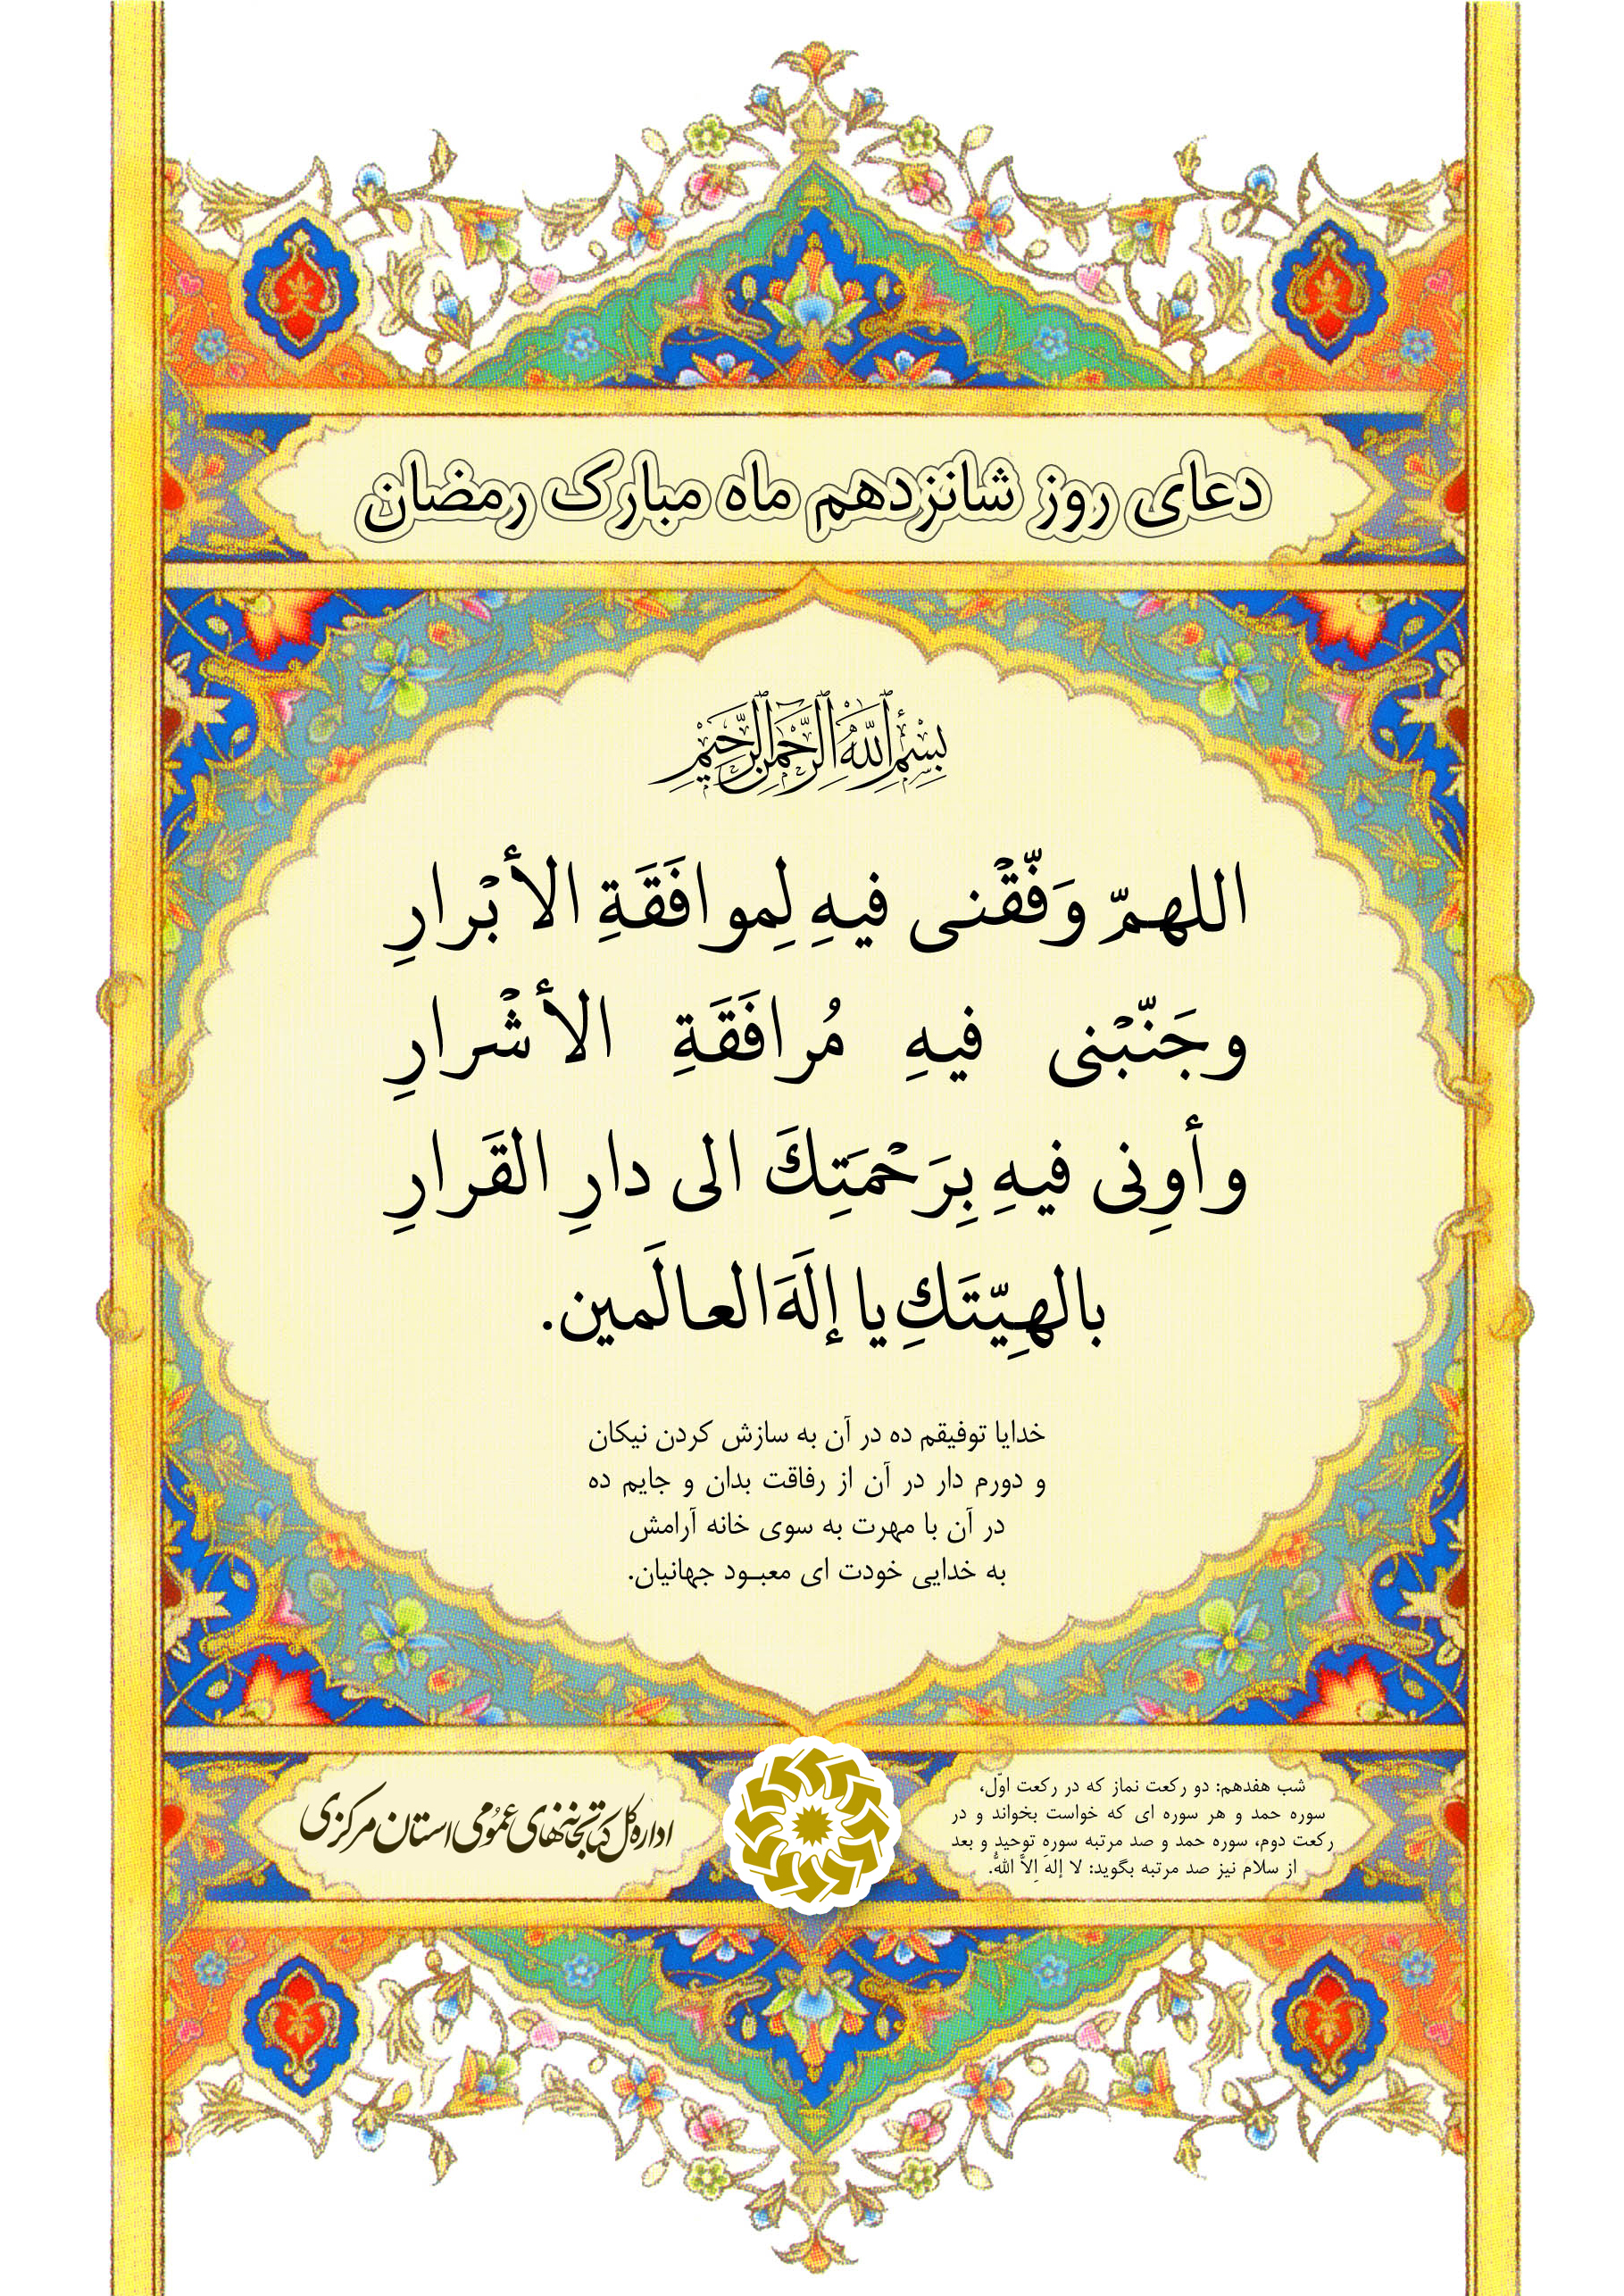 دعای روز شانزدهم ماه مبارک رمضان
بِسْمِ اللَّهِ الرَّحْمَنِ الرَّحِيمِ
اللهمّ وَفّقْنی فیهِ لِموافَقَةِ الأبْرارِ
وجَنّبْنی فیهِ مُرافَقَةِ الأشْرارِ
وأوِنی فیهِ بِرَحْمَتِكَ الی دارِ القَرارِ
بالهِیّتَكِ یا إلَهَ العالَمین.
خدایا توفیقم ده در آن به سازش کردن نیکان
و دورم دار در آن از رفاقت بدان و جایم ده
در آن با مهرت به سوی خانه آرامش
به خدایی خودت ای معبـود جهانیان.
شب هفدهم: دو رکعت نماز که در رکعت اوّل،
سوره حمد و هر سوره ای که خواست بخواند و در
رکعت دوم، سوره حمد و صد مرتبه سوره توحید و بعد
از سلام نیز صد مرتبه بگوید: لا إلهَ اِلاَّ اللهُ.
اداره کل کتابخانه‌های عمومی استان مرکزی